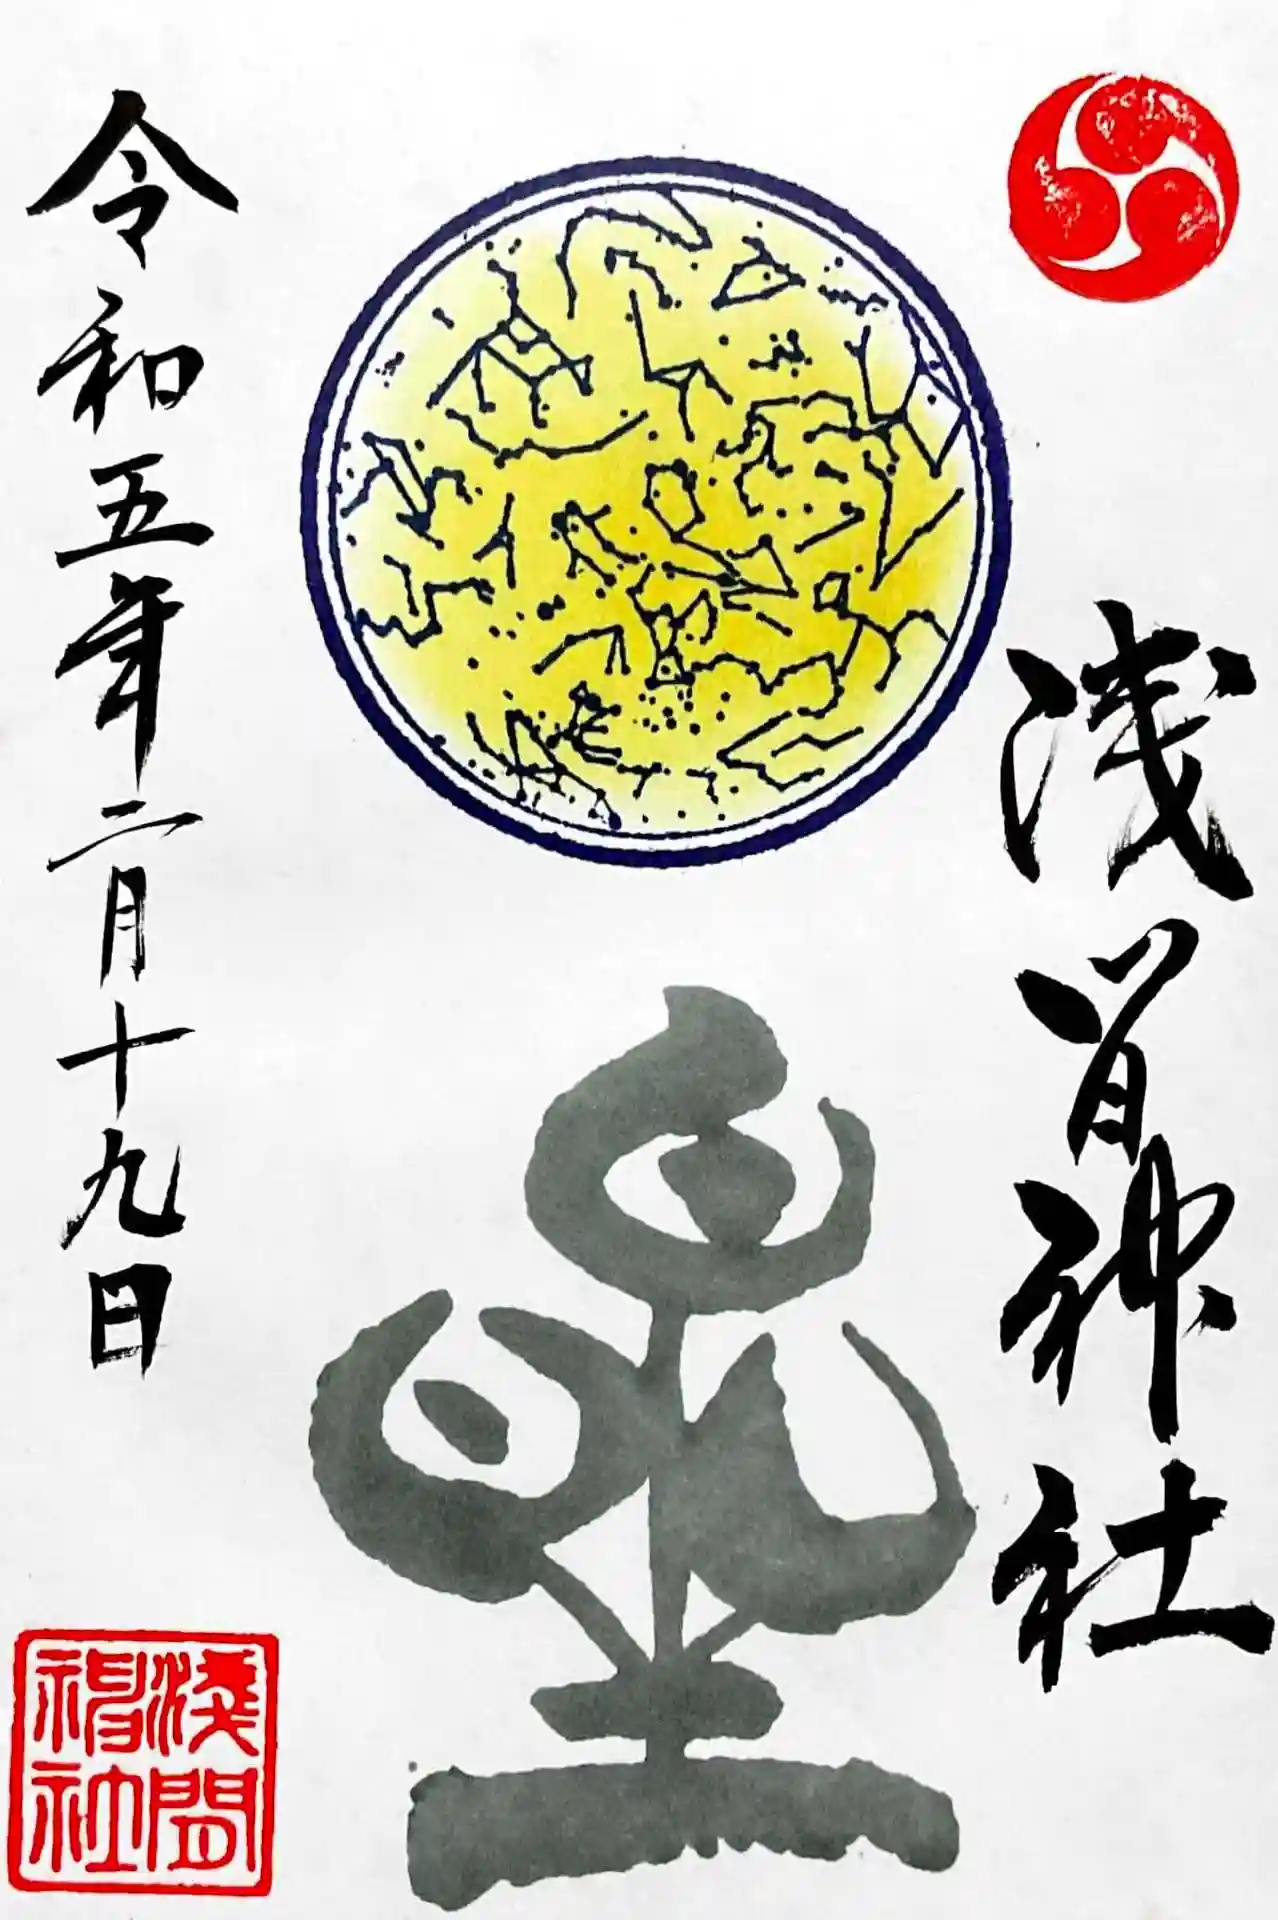 浅間神社
星
令和五年二月十九日
淺間
神社